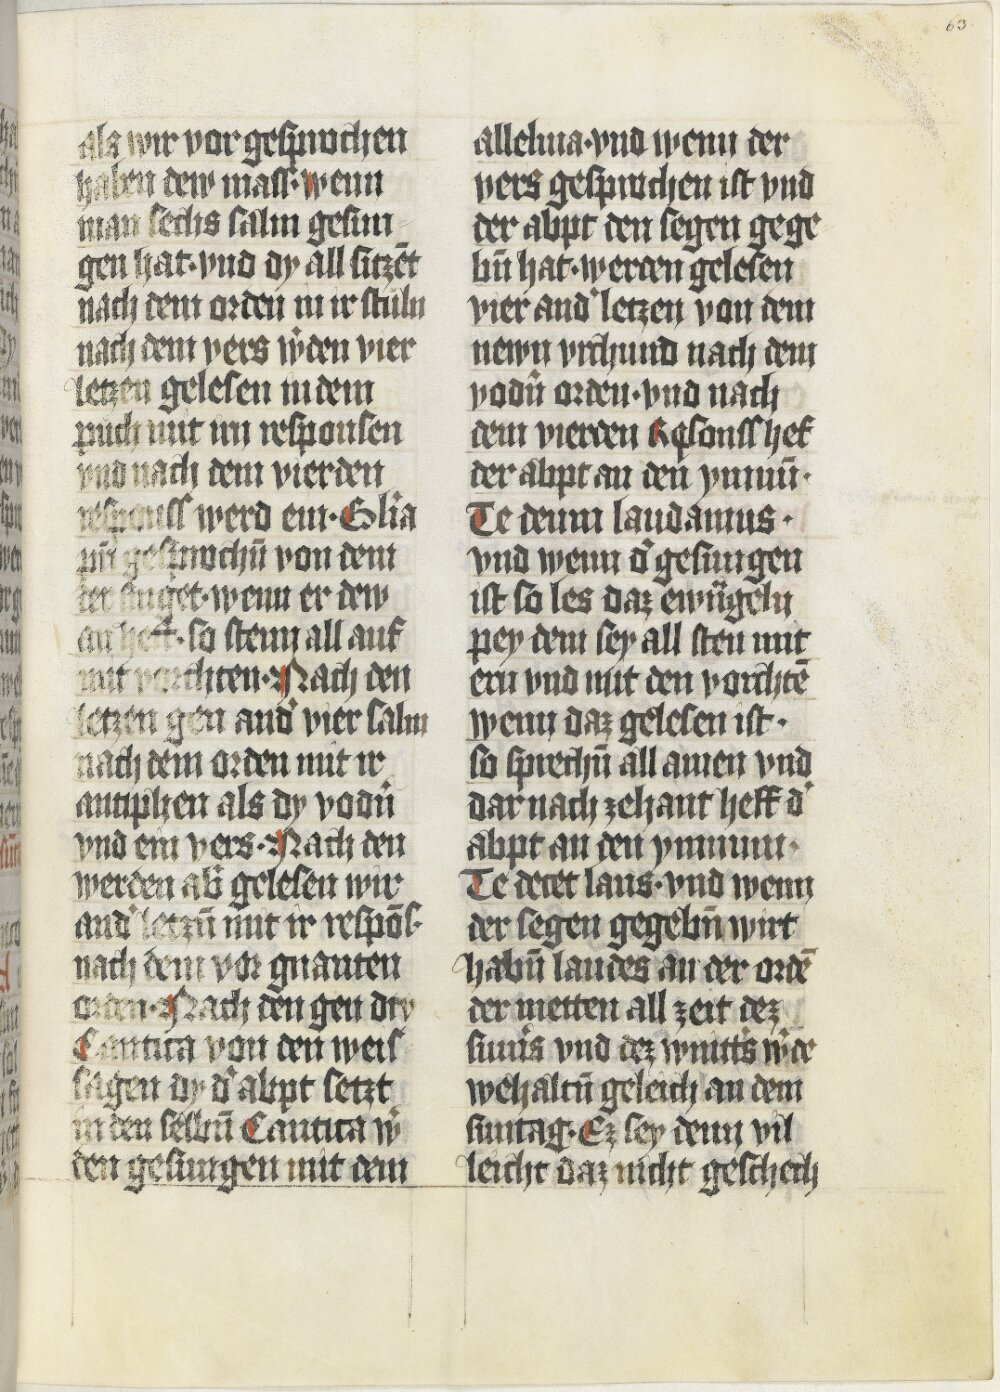 63
als wir vor gesprochen
haben dew mass · wenn
man sechs salm gesun
gen hat · vnd dy all siczēt
nach dem orden in ir stuln
nach dem vers w̄den vier
letzen gelesen in dem
puch mit irn responsen
vnd nach dem vierden
responss werd ein · Gl̄ia
pr̄i gesprochn̄ von dem
der singet · wenn er dew
an heft · so stenn all auf
mit vorchten · Nach den
letzen gen and̾ vier salm
nach dem orden mit ir
antiphen als dy vodn̄
vnd ein vers · Nach den
werden ab̾ gelesen wir
and̾ letzn̄ mit ir respōs ·
nach dem vor gnanten
orden · Nach den gen drv
Cantica von den weis
sagen dy d̾ abpt setzt
in den selbn̄ Cantica w̾
den gesungen mit dem
alleluia · vnd wenn der
vers gesprochen ist vnd
der abpt den segen gege
bn̄ hat · werden gelesen
vier and̾ letzen von dem
newn vrchund nach dem
vodn̄ orden · vnd nach
dem vierden Rp̄sonss hef
der abpt an den ymnū ·
Te deum laudamus ·
vnd wenn d̾ gesungen
ist so les daz ewn̄geln
pey dem sey all sten mit
ern vnd mit den vorchtē
wenn daz gelesen ist ·
so sprechn̄ all amen vnd
dar nach zehant heff d̾
abpt an den ymnum ·
Te decet laus · vnd wenn
der segen gegebn̄ wirt
habn̄ laudes an der ordē
der metten all zeit dez
sum̾s vnd dez wintt̾s w̾de
wehaltn̄ geleich an dem
suntag · Ez sey denn vil
leicht daz nicht geschech